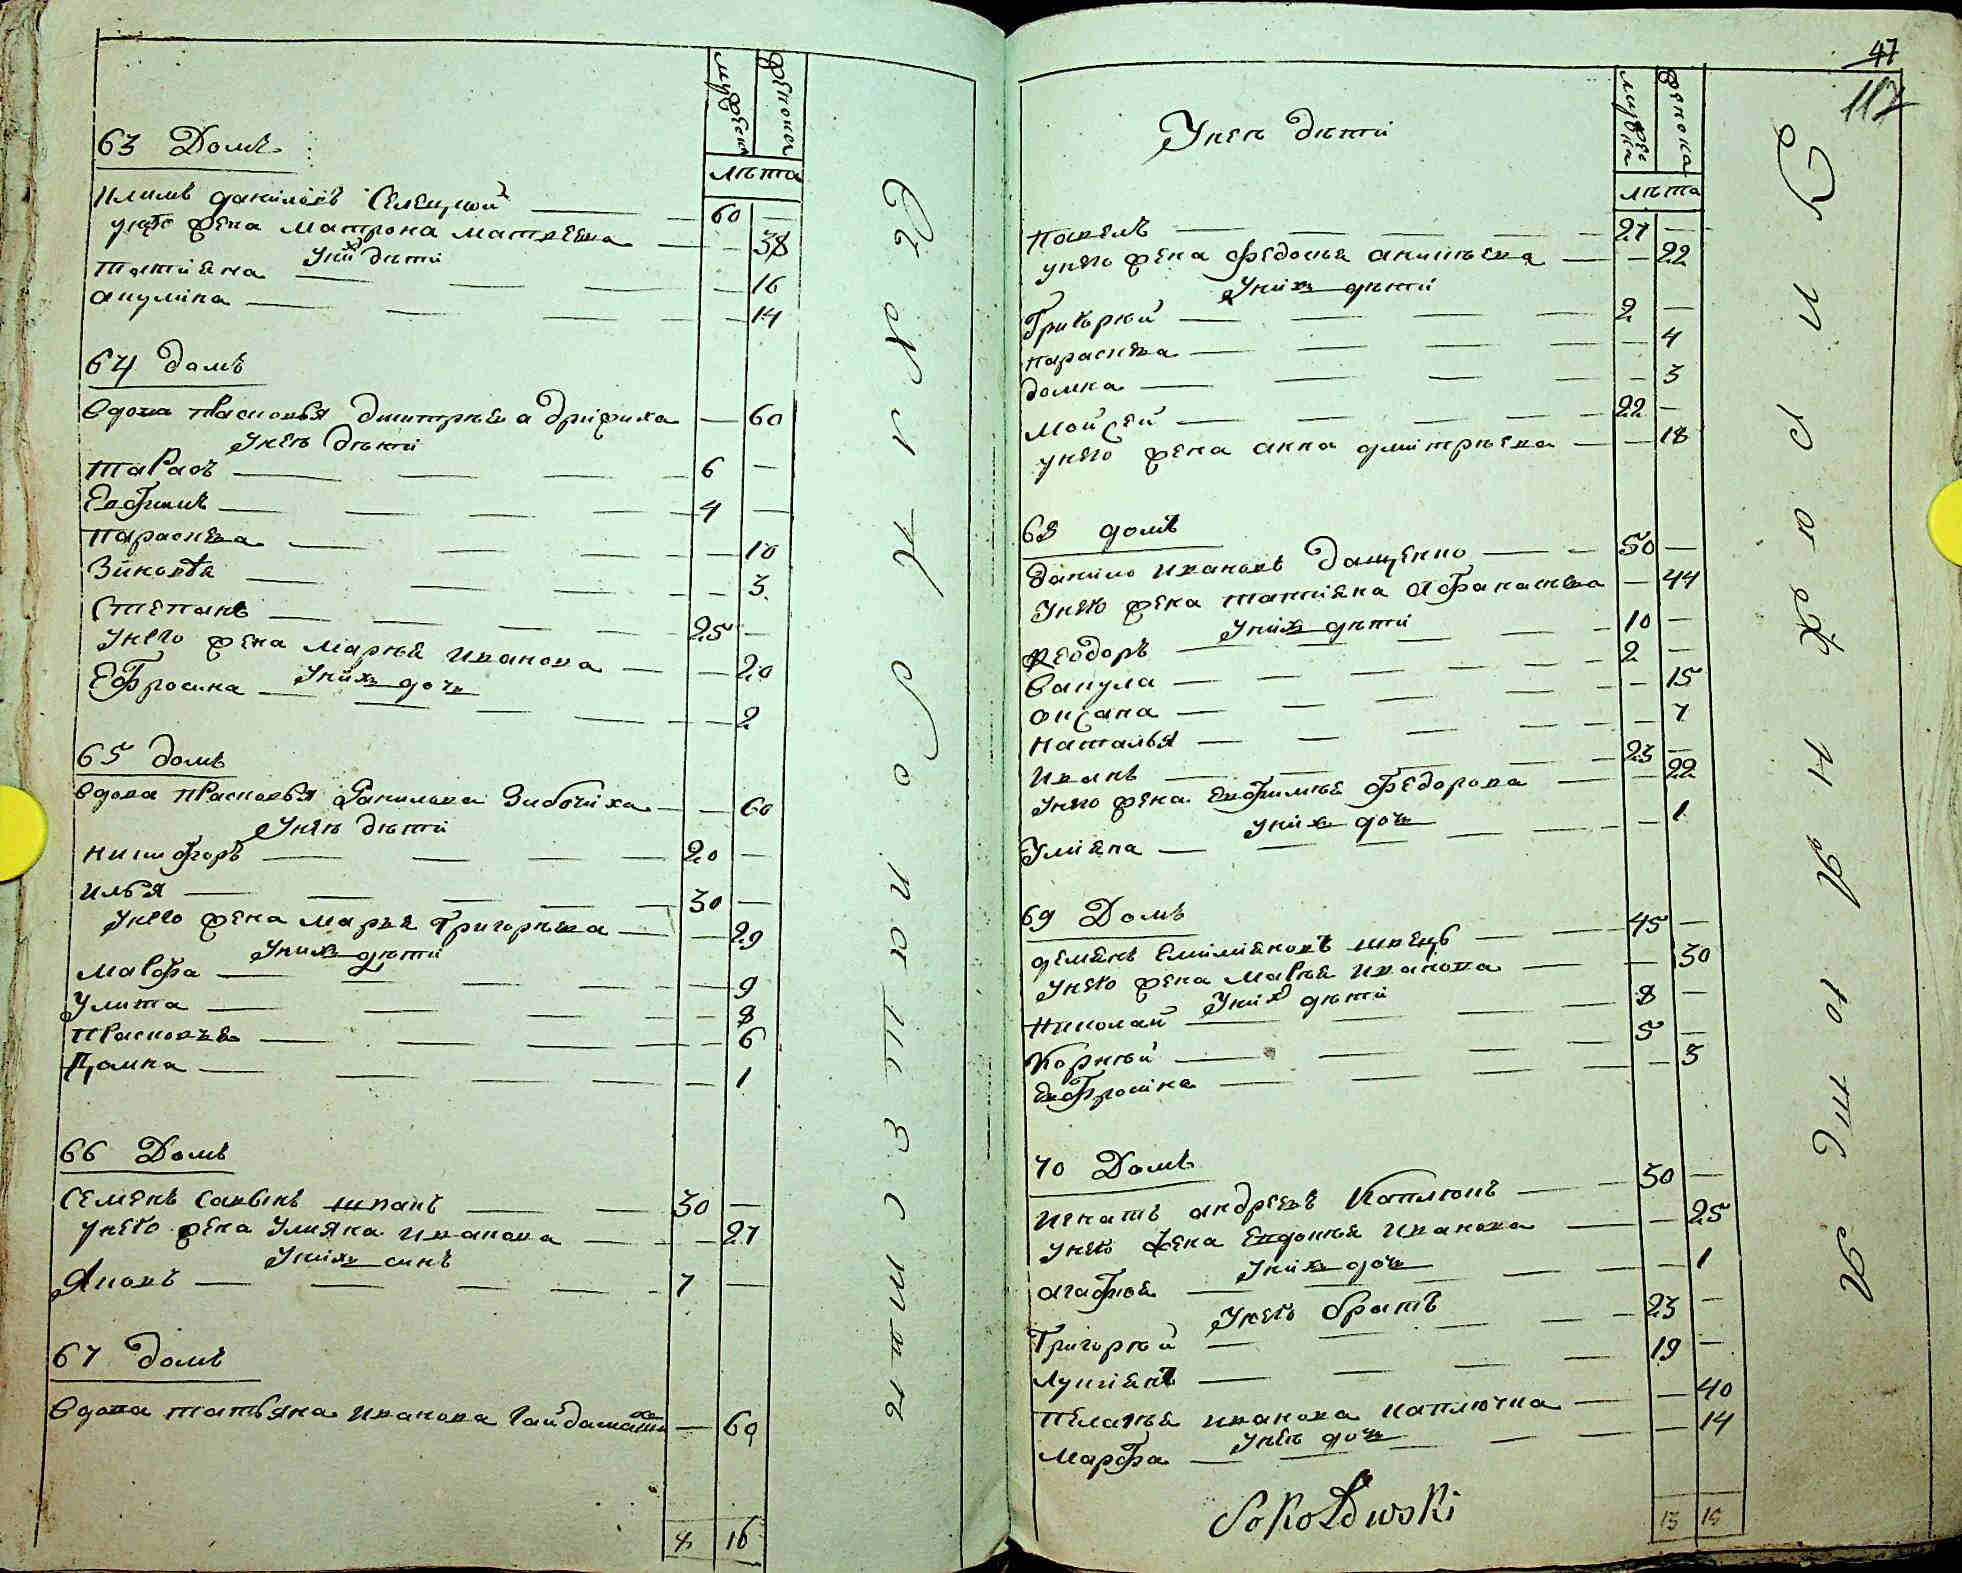 мужеска
женска
лѣта
63 Домъ
Климъ Даниловъ Селецкой 60
унего жена Матрона Матвеева 38
Уних дѣти
Татияна 16
Акулина 14
64 домъ
Вдова Прасковья Дмитрѣева 60
Унея дѣти
Тарасъ 6
Евфимъ 4
Параскева 10
Зиновѣя 3
Степанъ 25
Унего жена Марья Иванова 20
Унихъ дочь
Ефросина 2
65 домъ
Вдова Прасковья Данилова Зибочиха 60
Унея дѣти
Никифоръ 20
Илья 30
Унего жена Марья Григорьева 29
Унихъ дѣти
Марфа 9
Улита 8
Прасковья 6
Домна 1
66 Домъ
Семенъ Савинъ шпакъ 30
Унего жена Улияна Иванова 27
Унихъ синъ
Яковъ 7
67 домъ
Вдова Татьяна Иванова 60
8 16
47
117
мужеска
женска
лѣта
Унея дѣти
Павелъ 27
унего жена Федосья 22
Унихъ дѣти
Григорей 2
Параскева 4
Домна 3
Мойсей 22
унего жена Анна Дмитрѣева 18
68 домъ
Данило Ивановъ Дащенко 50
Унего жена Татияна Афанасьева 44
Унихъ дѣти
Феодоръ 10
Вакула 2
Оксана 15
Наталья 7
Иванъ 23
Унего жена Евфимья Федорова 22
унихъ дочь
Улияна 1
69 Домъ
Демянъ Емилияновъ швецъ 45
Унего жена Марья Иванова 30
Уних дѣти
Николай 8
Корней 5
Евфросина 3
70 Домъ
Игнатъ Андреевъ Каплюнъ 30
Унего жена Евдокия Иванова 25
Унихъ дочь
Агафья 1
Унего братъ
Григорѣй 23
Лукиянъ 19
Пелагея Иванова Каплючка 40
Унея дочь
Марфа 14
Sokołowski
13 15